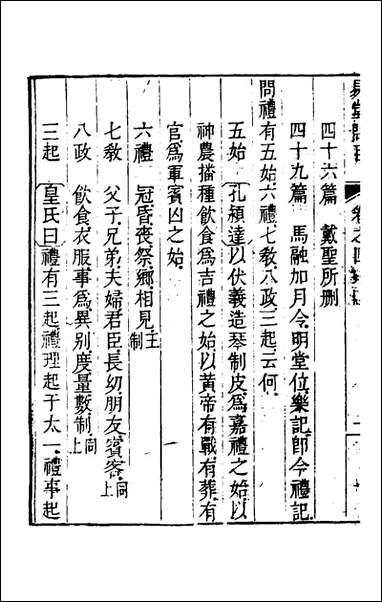 四十六篇　戴聖所刪
四十九篇　馬融加月令明堂位樂記卽今禮記
問禮有五始六禮七敎八政三起云何
五始　孔穎達以伏羲造琴制皮爲嘉禮之始以
神農播種飲食爲吉禮之始以黃帝有戰有葬有
官爲軍賓凶之始
六禮　冠昏喪祭鄉相見王制
七敎　父子兄弟夫婦君臣長幼朋友賓客同上
八政　飲食衣服事爲異别度量數制同上
三起　皇氏曰禮有三起禮理起于太一禮事起